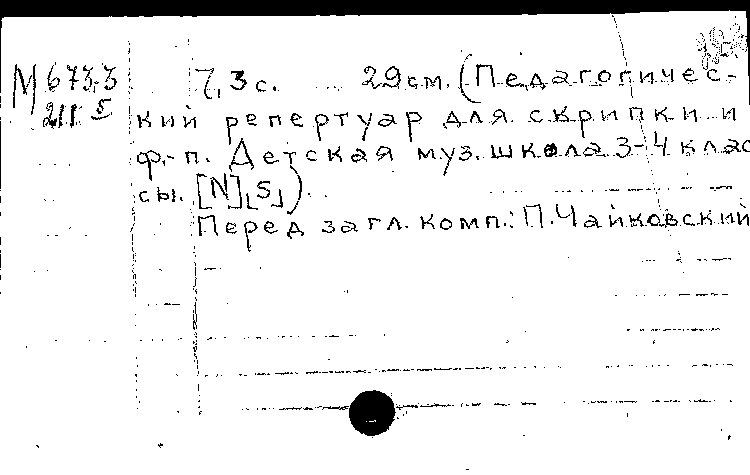 М 673.3 7, 3 с. 29 см. (Педагогичес-
211 кий репертуар для скрипки и
ф.-п. Детская муз. школа 3-4 клас
сы. [N] [S])
Перед загл. комп.: П. Чайковский